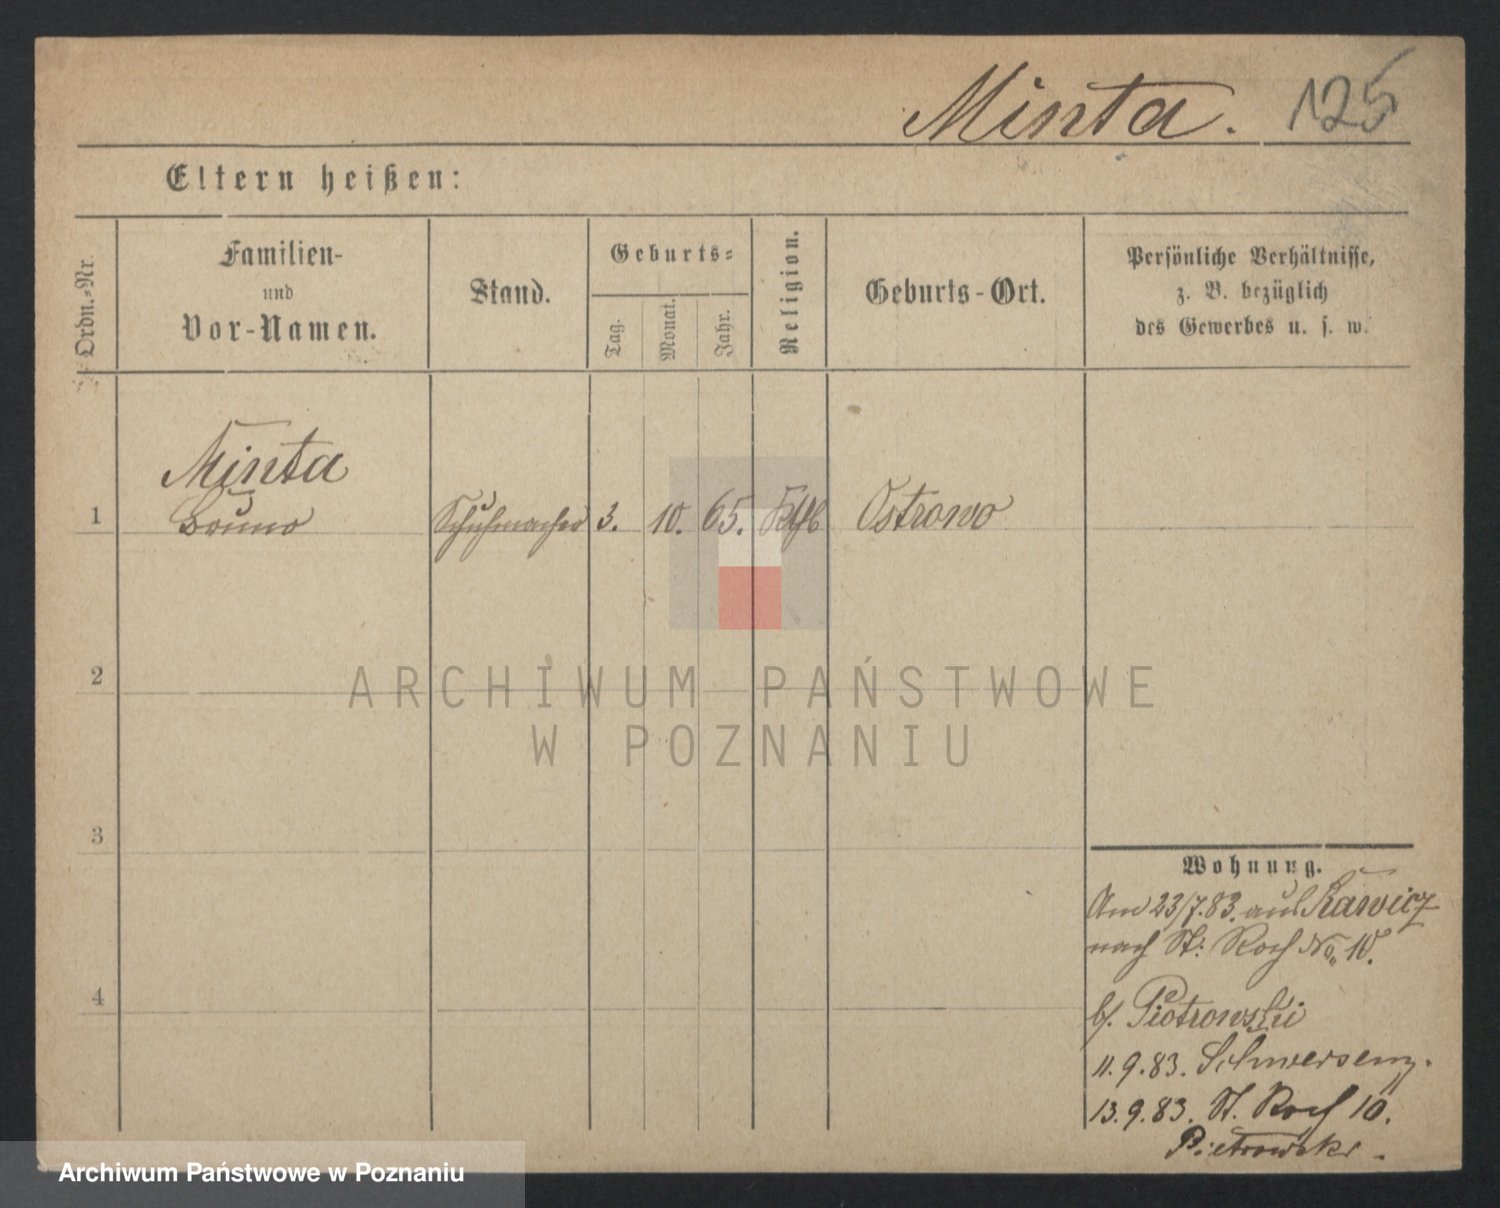 Minta. 125
Eltern heißen:
Ordn.-Nr.
Familien-
und
Vor-Namen.
Stand.
Geburts-
Tag.
Monat.
Jahr.
Religion.
Geburts-Ort.
Persönliche Verhältnisse,
z. B. bezüglich
des Gewerbes u. s. w.
Minta
1 Bruno Schuhmacher 3. 10. 65. Kth Ostrowo
2
3
4
Wohnung.
Am 23/7.83. aus Rawicz
nach St: Roch No 10.
b/. Piotrowski
11.9.83. Schwersenz.
13.9.83. St. Roch 10.
Pietrowski.
ARCHIWUM PAŃSTWOWE
W POZNANIU
Archiwum Państwowe w Poznaniu